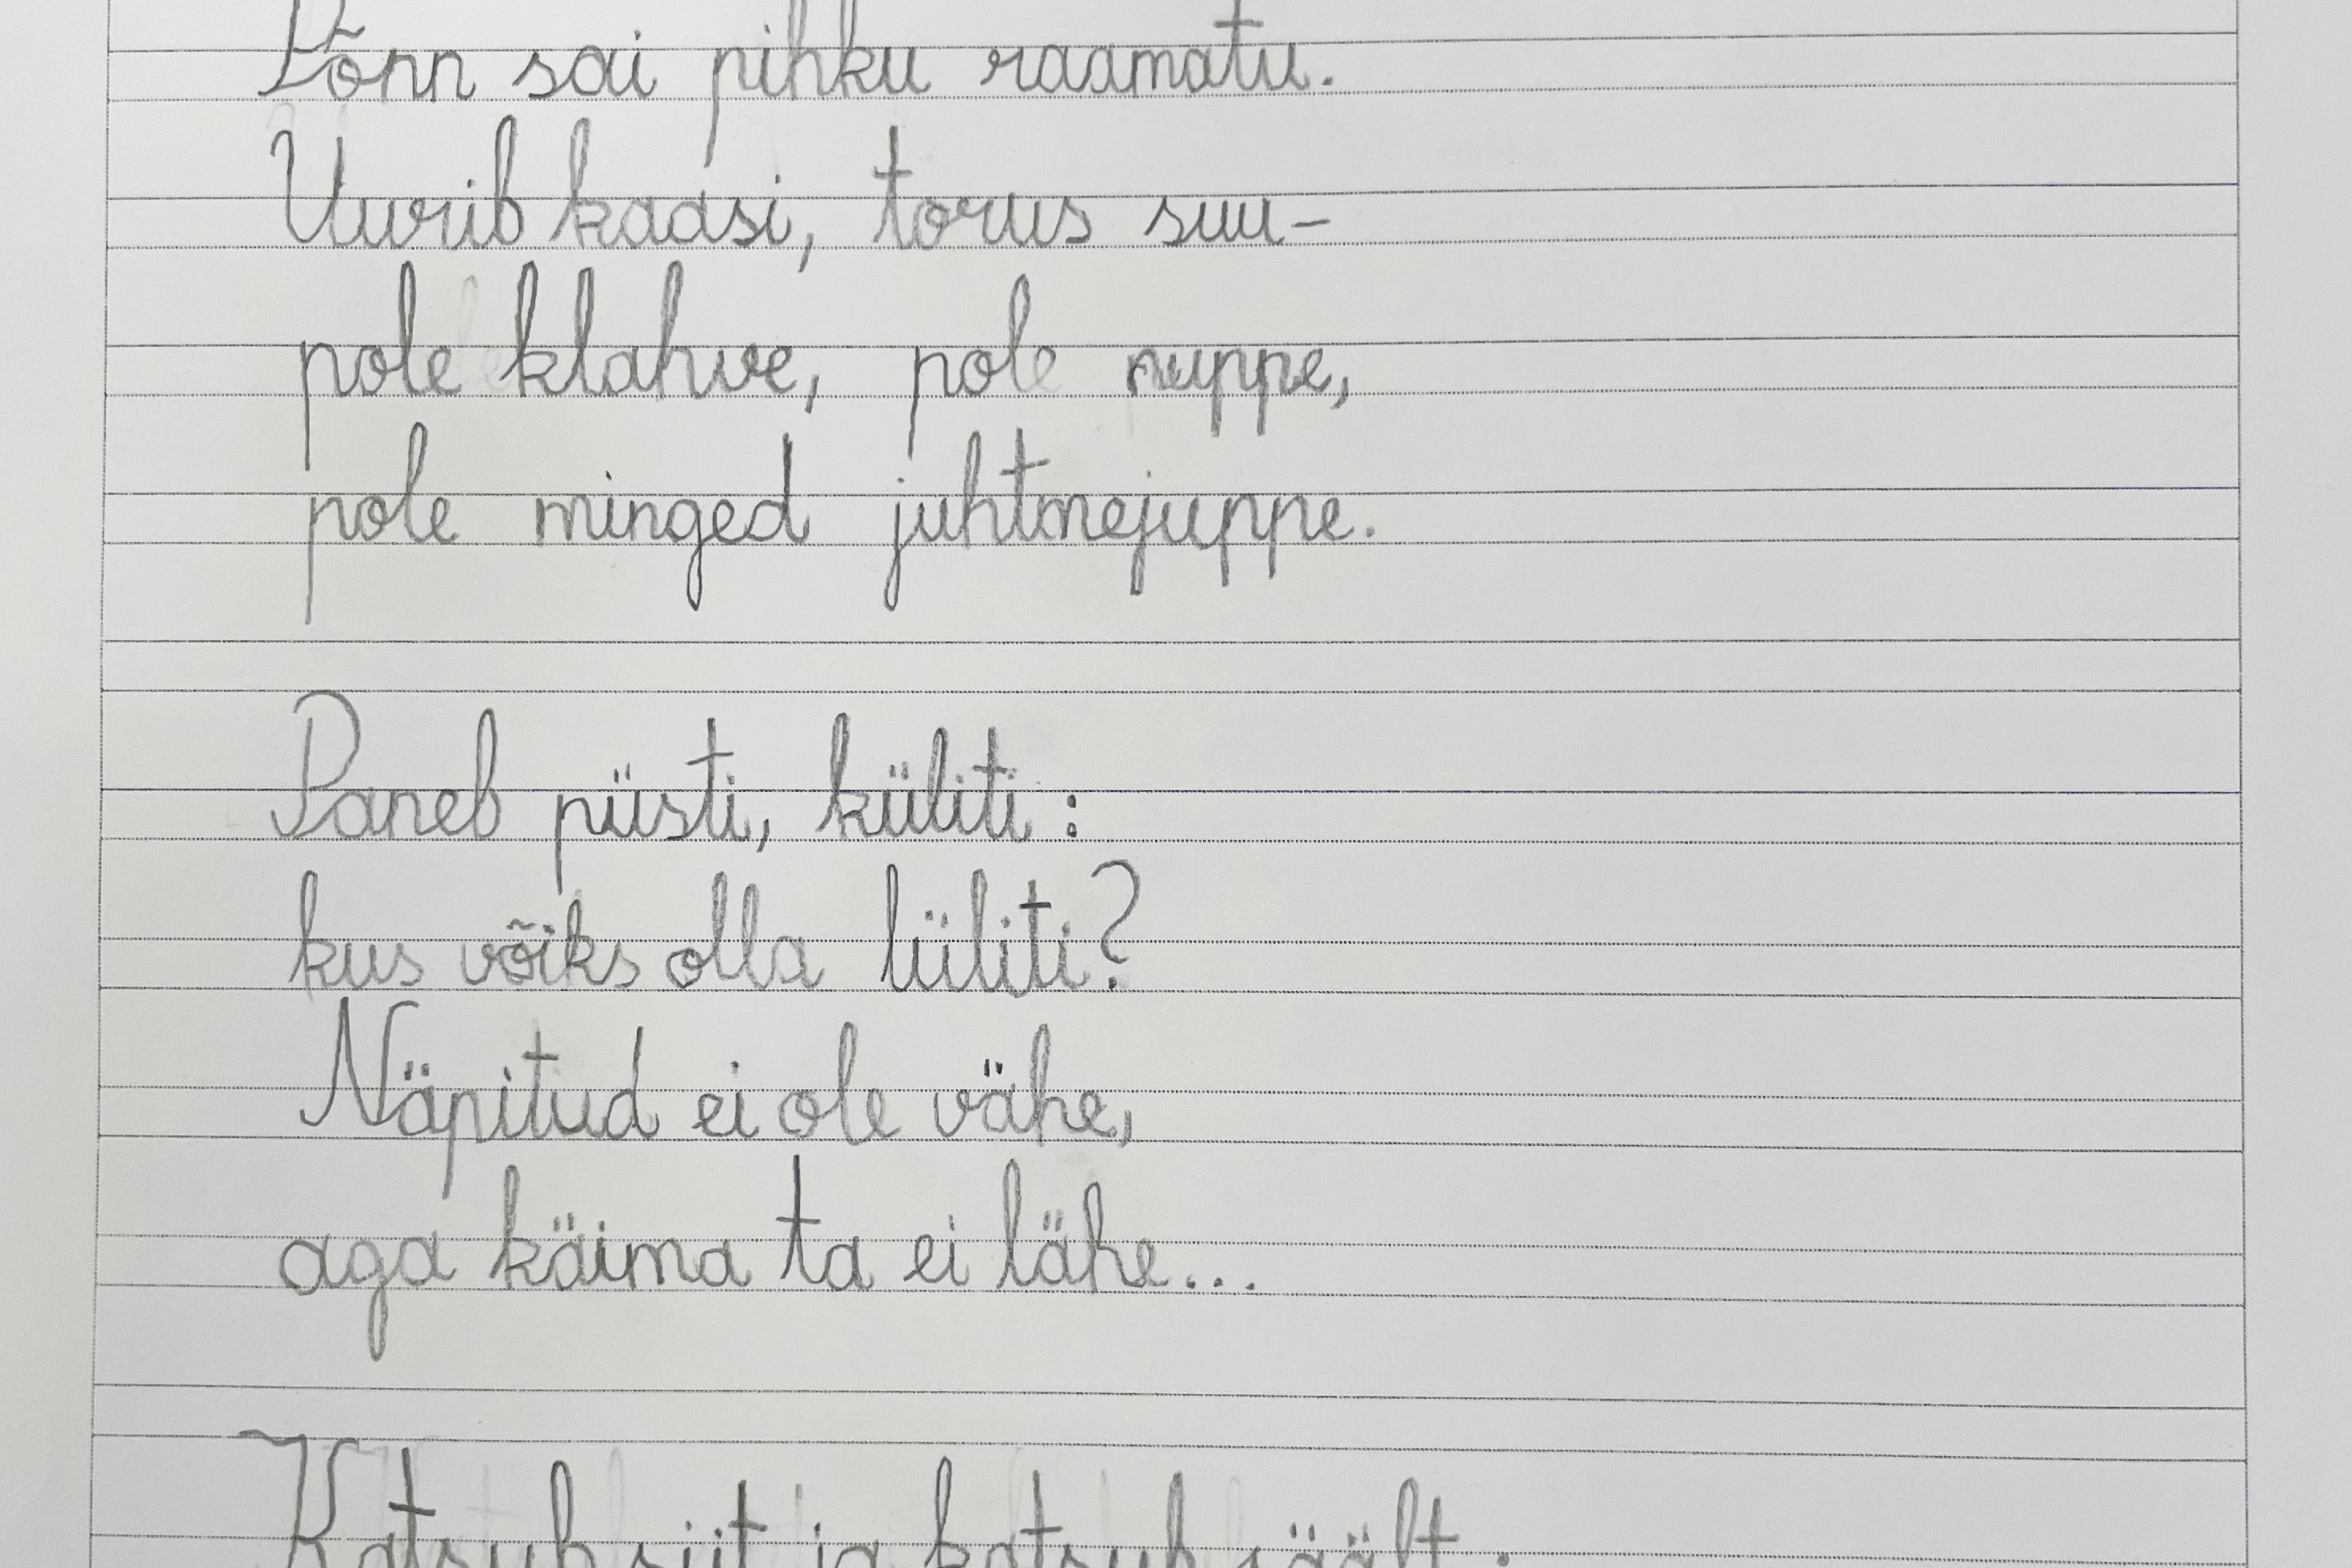 Tõnn sai pihku raamatu.
Uurib kaasi, torus suu-
pole klahve, pole nuppe,
pole minged juhtmejuppe.
Paneb püsti, küliti:
kus võiks olla lüliti?
Näpitud ei ole vähe,
aga käima ta ei lähe...
Katsub siit ja katsub säält: